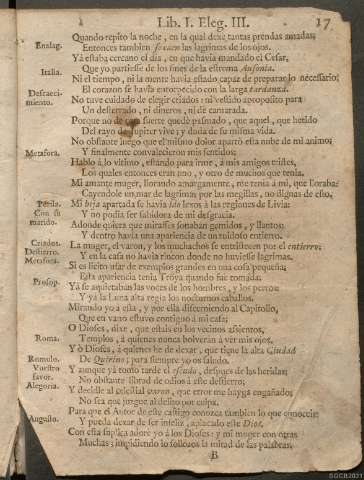 Lib. I. Eleg. III. 17
Quando repito la noche, en la qual dexè tantas prendas amadas;
Enalag. Entonces tambien foxaen las lagrimas de los ojos.
Yà estaba cercano el dia, en que havia mandado el Cesar,
Italia. Que yo partiesse de los fines de la estrema Ausonia.
Ni el tiempo, ni la mente havia estado capaz de preparar lo necessario;
Destaeci- El corazon se havia entorpecido con la larga tardanza.
miento. No tuve cuidado de elegir criados; ni vestido aproposito para
Un desterrado, ni dineros, ni de camarada.
Porque no de otra suerte quedè pasmado, que aquel, que herido
Del rayo de Jupiter vive; y duda de su misma vida.
No obstante luego que el mismo dolor apartò esta nube de mi animo;
Y finalmente convalecieron mis sentidos:
Metafora. Hablo à lo ultimo, estando para irme, à mis amigos tristes,
Los quales entonces eran uno, y otro de muchos que tenia.
Mi amante muger, llorando amargamente, me tenia à mi, que lloraba;
Cayendole un mar de lagrimas por las megillas, no dignas de esto.
Perila. Mi hija apartada se havia ido lexos à las regiones de Livia:
Con su Y no podia ser sabidora de mi desgracia.
marido. Adonde quiera que mirasses sonaban gemidos, y llantos.
Y dentro havia una apariencia de un ruidoso entierro.
Criados. La muger, el varon, y los muchachos se entristecen por el entierro:
Destierro. Y en la casa no havia rincon donde no huviesse lagrimas.
Metafora. Si es licito usar de exemplos grandes en una cosa pequeña;
Esta apariencia tenia Troya quando fue tomada.
Prosop. Yà se aquietaban las voces de los hombres, y los perros:
Y yà la Luna alta regia los nocturnos caballos.
Mirando yo à esta, y por ella discerniendo al Capitolio,
Que en vano estuvo contiguo à mi casa:
O Dioses, dixe, que estais en los vecinos assientos,
Roma. Templos, à quienes nunca bolveràn à ver mis ojos,
Y ò Dioses, à quienes he de dexar, que tiene la alta Ciudad
Romulo. De Quirino; para siempre yo os saludo.
Vuestro Y aunque yà tomo tarde el escudo, despues de las heridas;
favor. No obstante librad de odios à este destierro;
Alegoria. Y decidle al celestial varon, que error me haya engañado;
No sea que juzgue al delito por culpa.
Para que el Autor de este castigo conozca tambien lo que conoceis:
Augusto. Y pueda dexar de ser infeliz, aplacado este Dios.
Con esta suplica adorè yo à los Dioses; y mi muger con otras
Muchas; impidiendo los sollozos la mitad de las palabras.
B